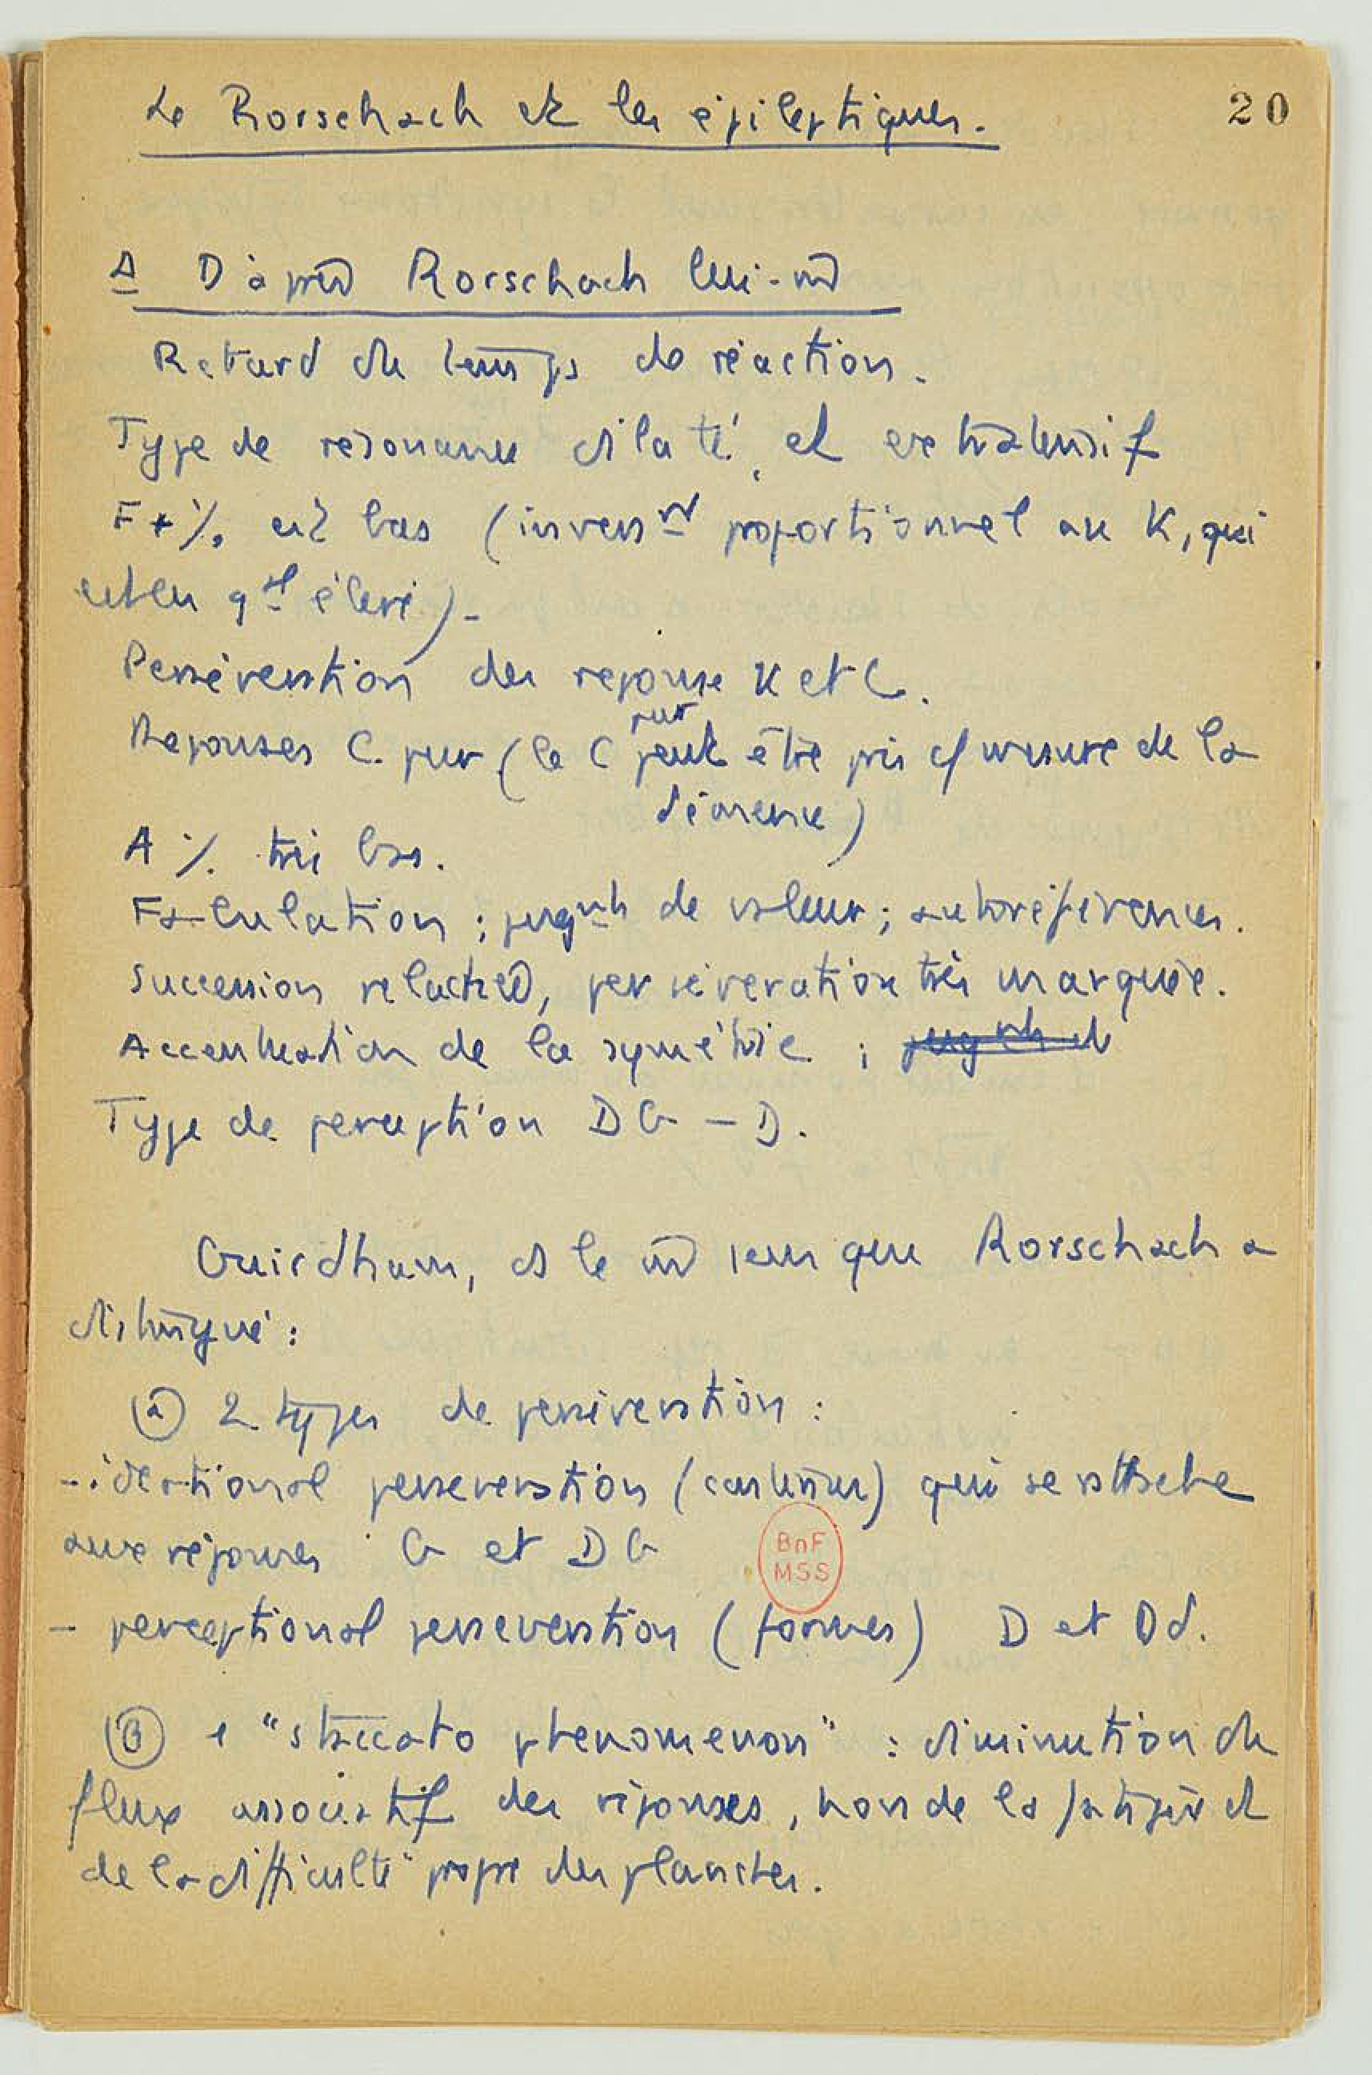 Le Rorschach et les épileptiques.
20
A D'après Rorschach lui-m̄
Retard du temps de réaction.
Type de résonance dilaté, et extratensif
F+% est bas (inversnt proportionnel au K, qui
est en gal élevé).
Persévération des réponse K et C.
Réponses C. pur (le C pur peut être pris c/ mesure de la
démence)
A % très bas.
; jugnts de valeur ; autoréférences.
Succession relachée, persévération très marquée.
Accentuation de la symétrie ;
Type de perception DG – D.
Guirdham, ds le m̄ sens que Rorschach a
distingué :
(a) 2 types de persévération :
- ideational perseveration (contenus) qui se rattache
aux réponses G et DG
BnF
MSS
- perceptional perseveration (formes) D et Dd.
(B) 1 "staccato phenomenon" : diminution du
flux associatif des réponses, hors de la fatigue et
de la difficulté propre des planches.